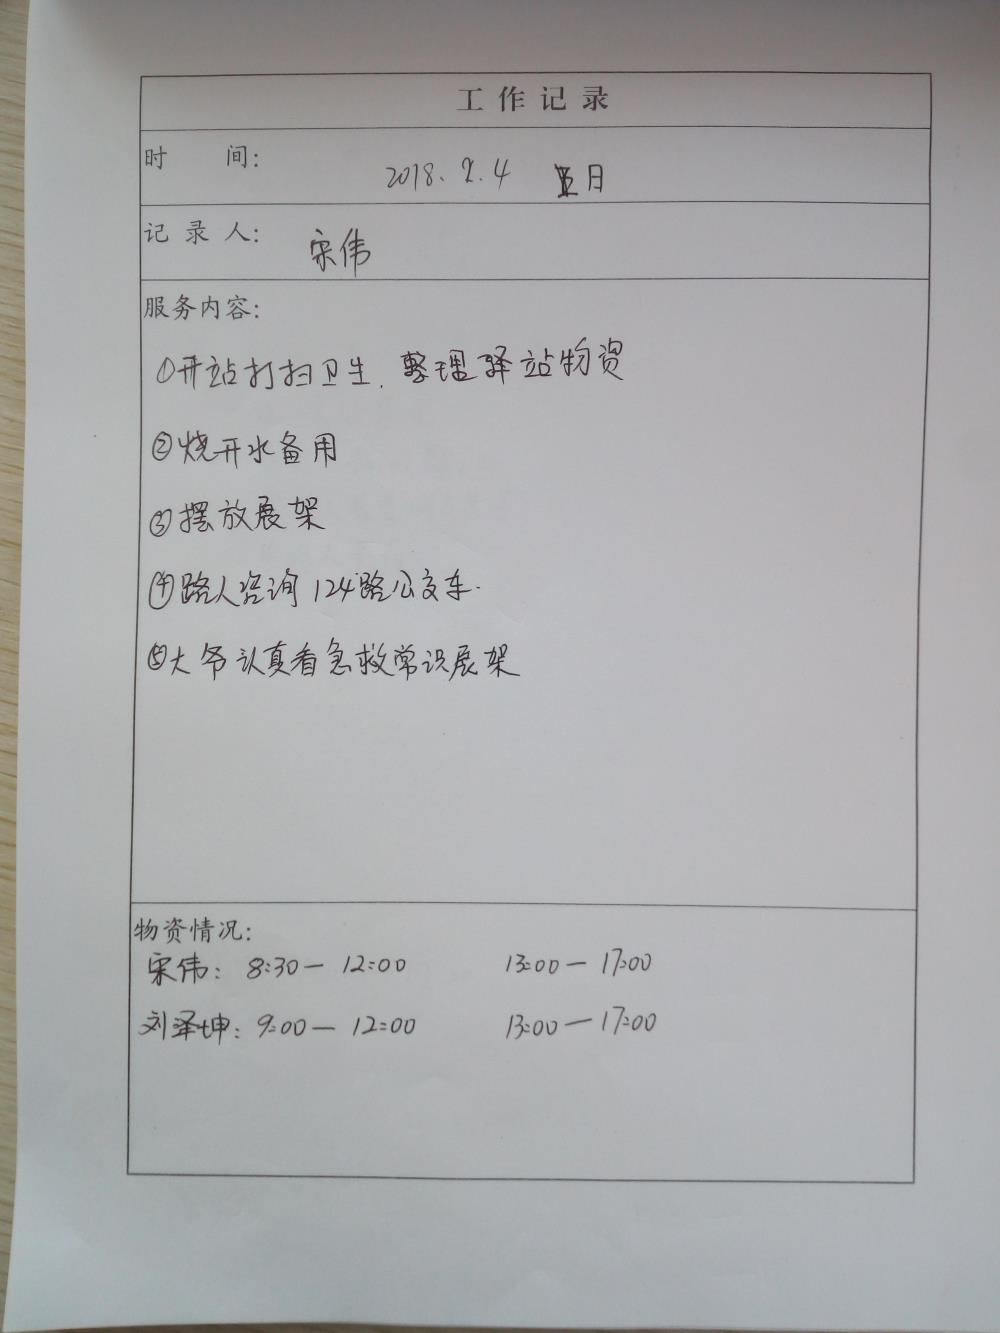 工作记录
时 间: 2018.2.4 日
记录人: 宋伟
服务内容:
①开站打扫卫生.整理驿站物资
②烧开水备用
③摆放展架
④路人咨询124路公交车.
⑤大爷认真看急救常识展架
物资情况:
宋伟: 8:30— 12:00 13:00— 17:00
刘泽坤: 9:00— 12:00 13:00—17:00